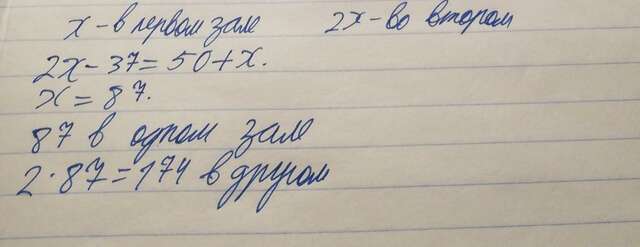 x - в первом зале 2x - во втором
2x - 37 = 50 + x.
x = 87.
87 в одном зале
2 · 87 = 174 в другом